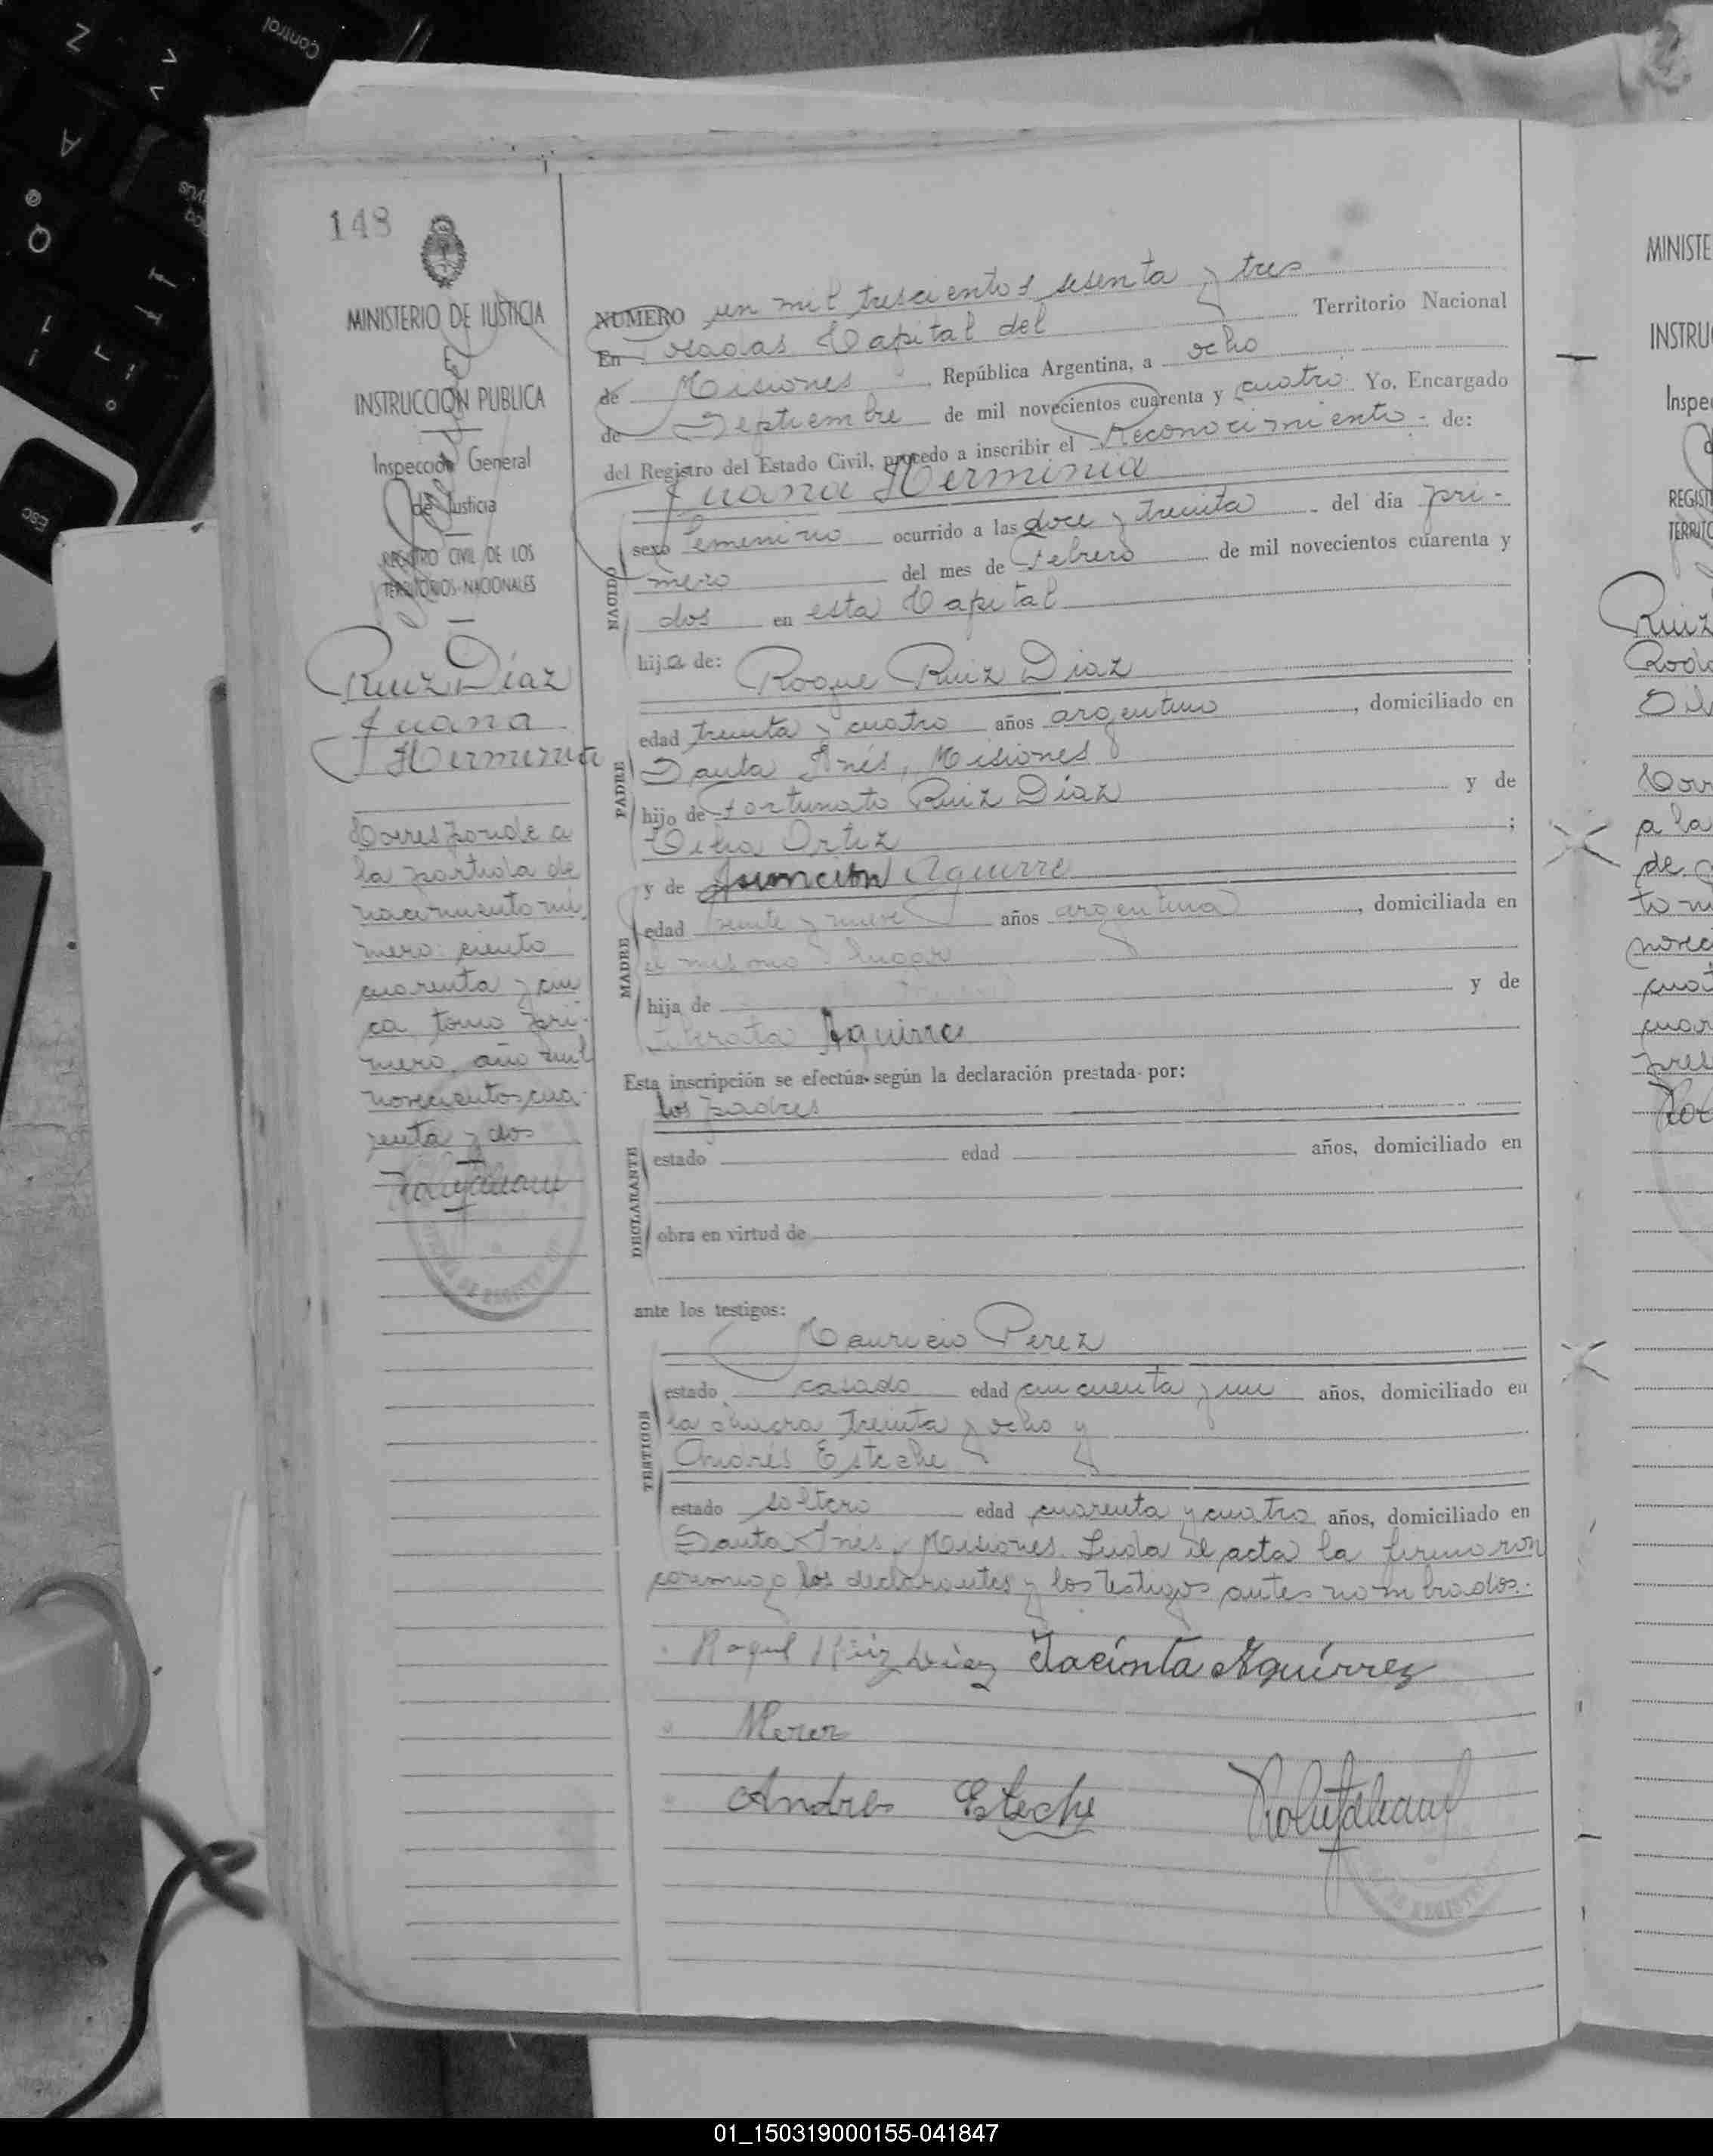 148
MINISTERIO DE JUSTICIA
INSTRUCCION PUBLICA
Inspección General
de Justicia
REGISTRO CIVIL DE LOS
TERRITORIOS NACIONALES
Ruiz Díaz
Juana
Herminia
Corresponde a
la partida de
nacimiento nú
mero: ciento
cuarenta y cin
co, tomo pri-
mero, año mil
novecientos cua-
renta y dos
NUMERO un mil trescientos sesenta y tres
En Posadas Capital del Territorio Nacional
de Misiones, República Argentina, a ocho
de Septiembre de mil novecientos cuarenta y cuatro Yo. Encargado
del Registro del Estado Civil, procedo a inscribir el Reconocimiento - de:
Juana Herminia
NACIDO
sexo femenino ocurrido a las doce y treinta del día pri-
mero del mes de Febrero de mil novecientos cuarenta y
dos en esta Capital
hija de: Roque Ruiz Diaz
PADRE
edad treinta y cuatro años argentino, domiciliado en
Santa Inés, Misiones
hijo de Fortunato Ruiz Díaz y de
Ortiz;
y de Asunción Aguirre
MADRE
edad veinte y nueve años argentina, domiciliada en
el mismo lugar
hija de y de
Liberata Aguirre
Esta inscripción se efectúa según la declaración prestada por:
los padres
DECLARANTE
estado edad años, domiciliado en
obra en virtud de
ante los testigos:
Mauricio Perez
TESTIGOS
estado casado edad cincuenta y un años, domiciliado en
la chacra treinta y ocho y
Andrés Esteche
estado soltero edad cuarenta y cuatro años, domiciliado en
Santa Inés, Misiones. Leida el acta la firmaron
conmigo los declarantes y los testigos antes nombrados.-
Roque Ruiz Diaz Jacinta Aguirrez
Andres Esteche
MINISTE
INSTRU
Inspe
REGIST
TERRITO
Ruiz
a la
de
to
Esc
Control
01_150319000155-041847